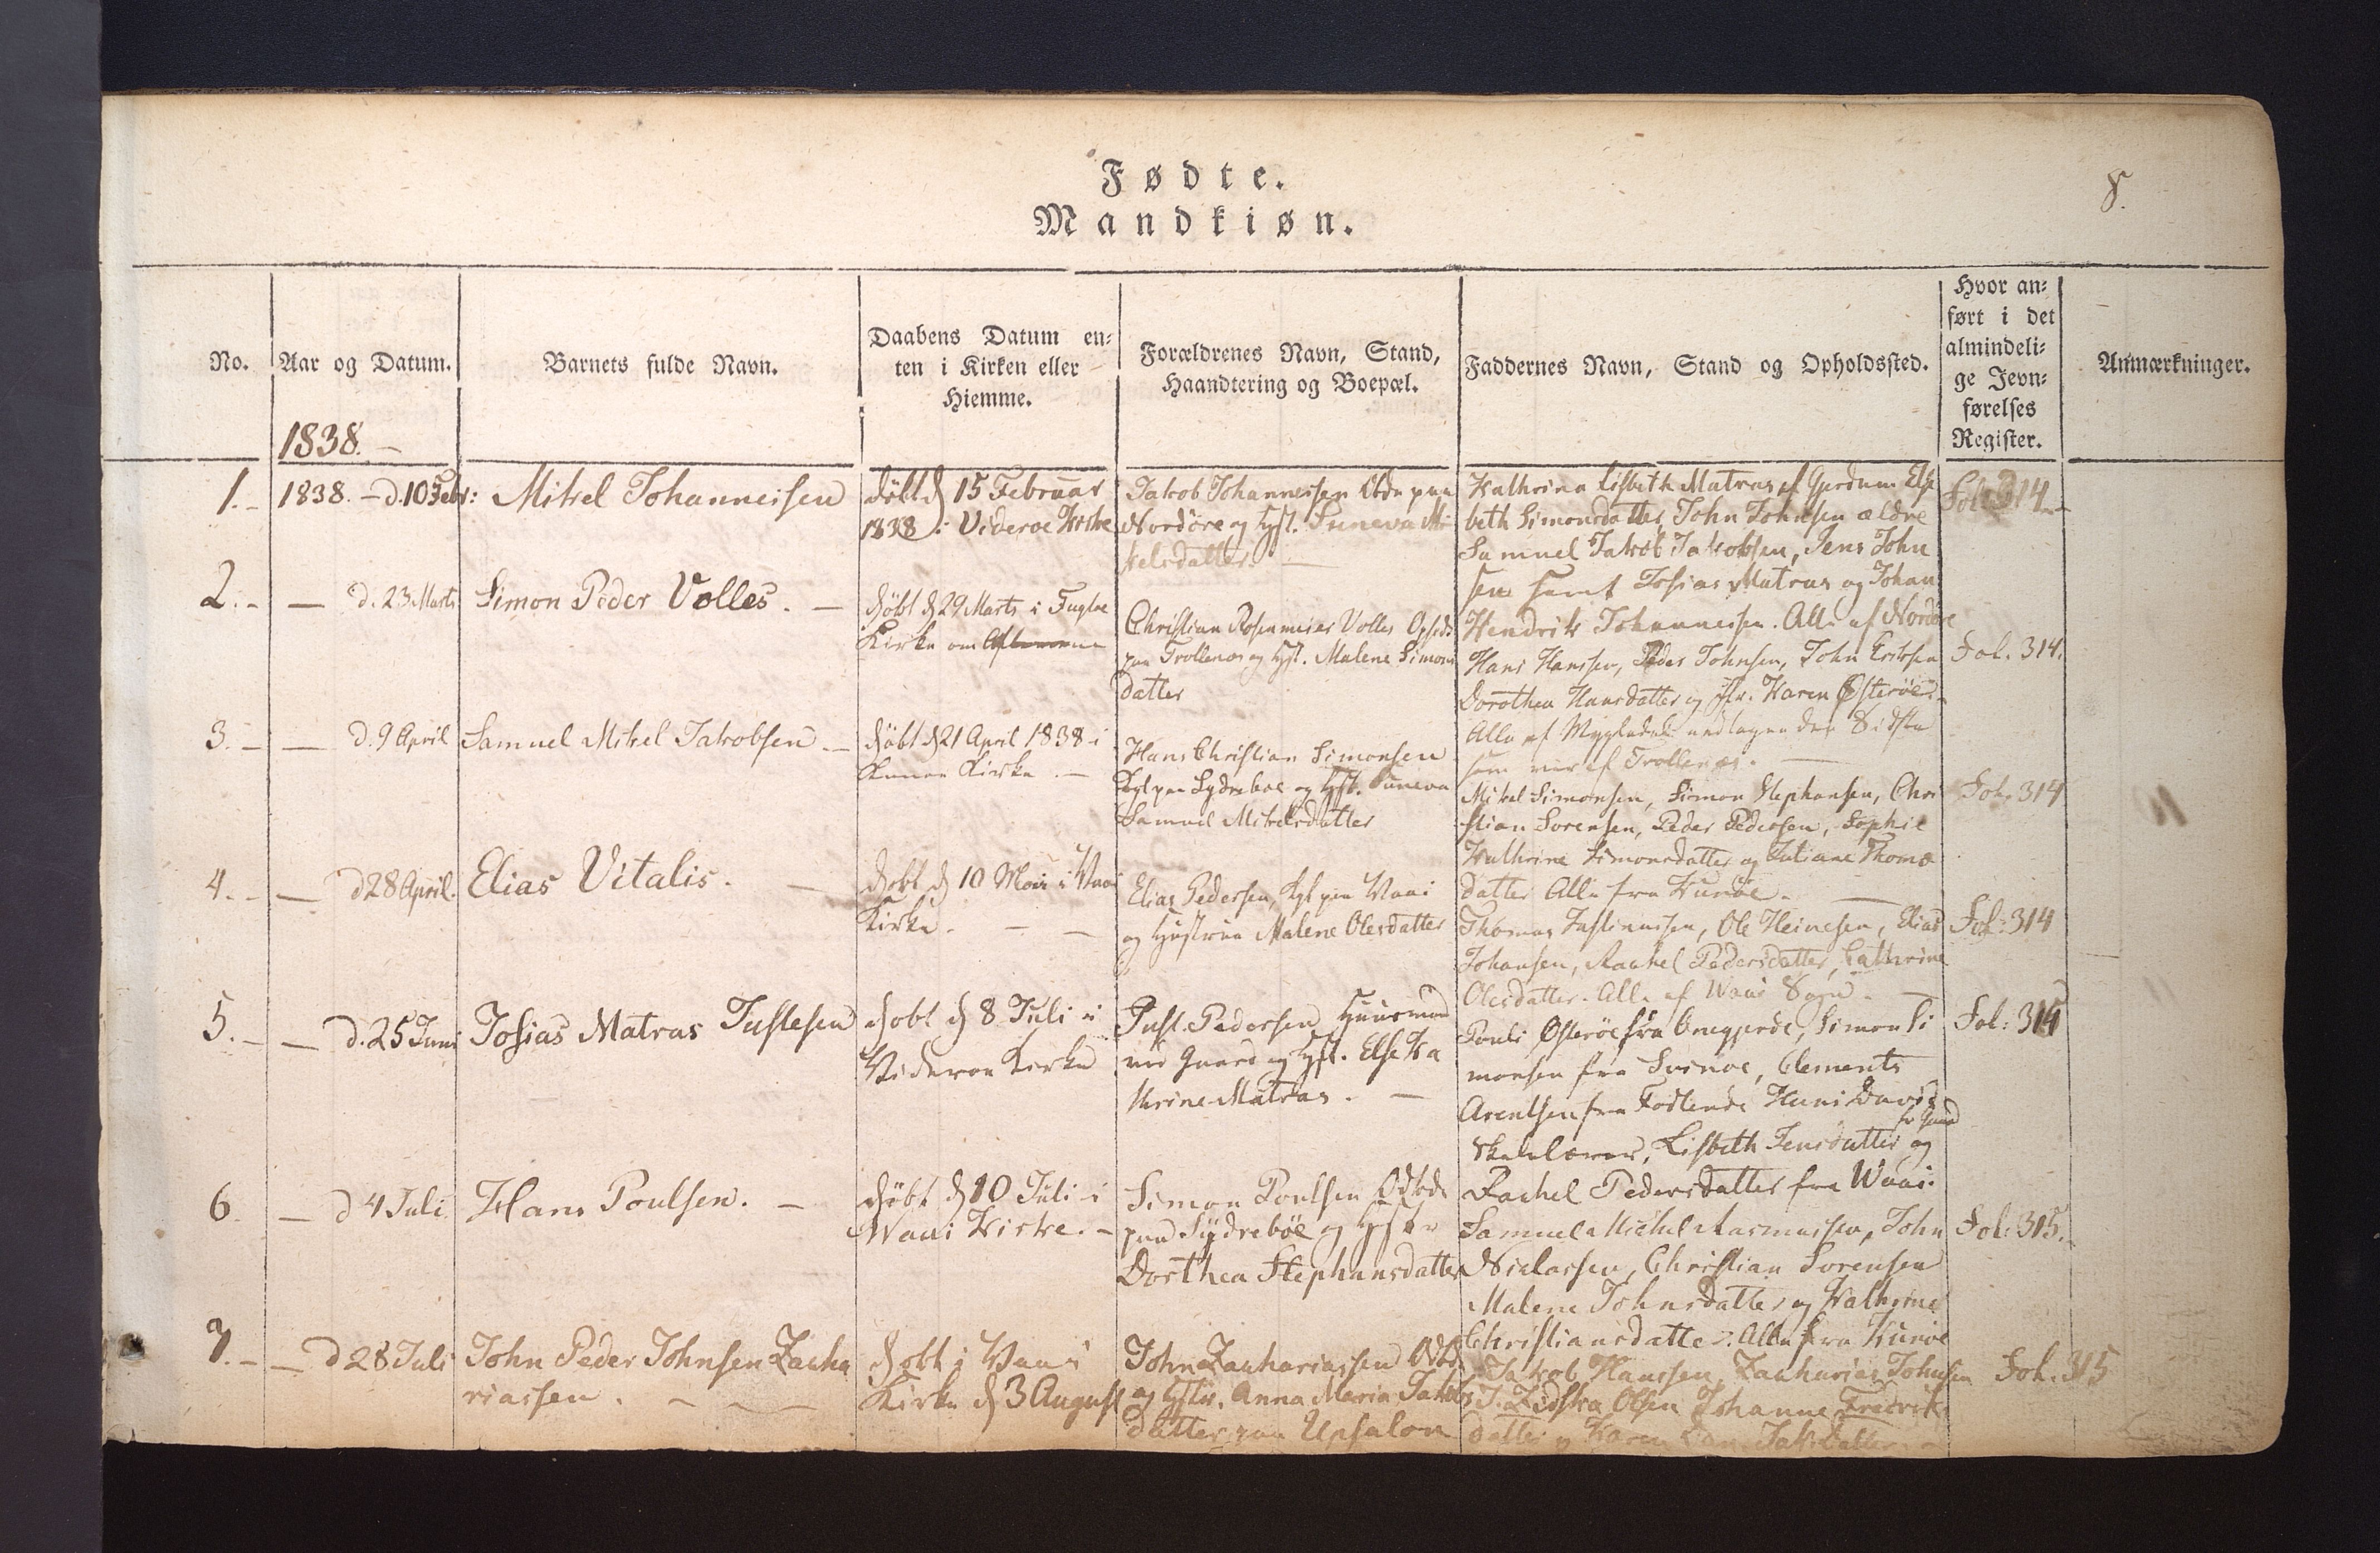 Fødte.
Mandkiøn.
8.
No.
Aar og Datum.
Barnets fulde Navn.
Daabens Datum en-
ten i Kirken eller
Hiemme.
Forældrenes Navn, Stand,
Haandtering og Boepæl.
Faddernes Navn, Stand og Opholdssted.
Hvor an-
ført i det
almindeli-
ge Jevn-
førelses
Register.
Anmærkninger.
1838.
1.
1838. - d. 10 Febr:
Mikel Johannesen
døbt d 15 Februar
1838 i Viderøe Kirke
Jakob Johannesen paa
Nordøre og Hst. Suneva Mi
kelsdatter
Kathrina Lisbeth Matras Else
beth Simonsdatter, John Johnsen ældre
Samuel Jakob Jakobsen, Jens John
sen samt Josias Matras og Johan
Hendrik Johannesen. Alle af Nordøre
Fol: 314
2.
d. 23 Marts
Simon Peder Volles.
døbt d 29 Marts i Fugloe
Kirke om
Christian Rosenmeier Volles Opsid:
paa Trollenæs og Hst. Malene Simons
datter
Hans Hansen, Peder Johnsen, John Eriksen
Dorothea Hansdatter og Karen Østerøe.
Alle af Mygledal undtagen den Sidste
som var af Trollenæs.
Fol. 314.
3.
d. 9 April
Samuel Mikel Jakobsen
døbt d 21 April 1838 i
Kunøe Kirke.
Hans Christian Simonsen
paa Sydreboe og Hst. Suneva
Samuel Mikelsdatter
Mikel Simonsen, Simon Stephansen, Chri
stian Sorensen, Peder Pedersen, Sophie
Kathrine Simonsdatter og Jutiane Thomæ
datter Alle fra Kunøe.
Fol. 314
4.
d 28 April.
Elias Vitalis.
døbt d 10 Mai i Vaai
Kirke.
Elias Pedersen, paa Vaai
og Hustrue Malene Olesdatter
Thomas Justinussen, Ole Heinesen, Elias
Johansen, Rachel Pedersdatter, Cathrine
Olesdatter. Alle af Waai Sogn.
Fol: 314
5.
d. 25 Juni
Josias Matras Justesen
døbt d 8 Juli i
Videroe Kirke
Just. Pedersen Huusmand
ved Gaard og Hst. Else Ka
thrine Matras.
Pouli Østerøe fra Onegjerde, Simon Si
monsen fra Svinøe, Clements
Arentsen fra Hans David
Skolelærer, Lisbeth Jensdatter fr Gaard og
Rachel Pedersdatter fra Waai.
Fol: 315
6.
d 4 Juli
Hans Poulsen.
døbt d 10 Juli i
Waai Kirke.
Simon Poulsen
paa Sydrebøe og Hstr
Dorthea Stephansdatter
Samuel Michel Rasmussen, John
Niclassen, Christian Sorensen
Malene Johnsdatter og Kathrine
Christiansdatter. Alle fra Kunøe
Fol: 315.
7.
d 28 Juli
John Peder Johnsen Zacha
riassen.
døbt i Vaai
Kirke d 3 August
John Zachariassen
og Hstr. Anna Maria Jakobs
datter paa Upsalon
Jakob Hansen, Zacharias Johnsen
Olsen Johanne Fredriks
datter og Karen datter
Fol. 315